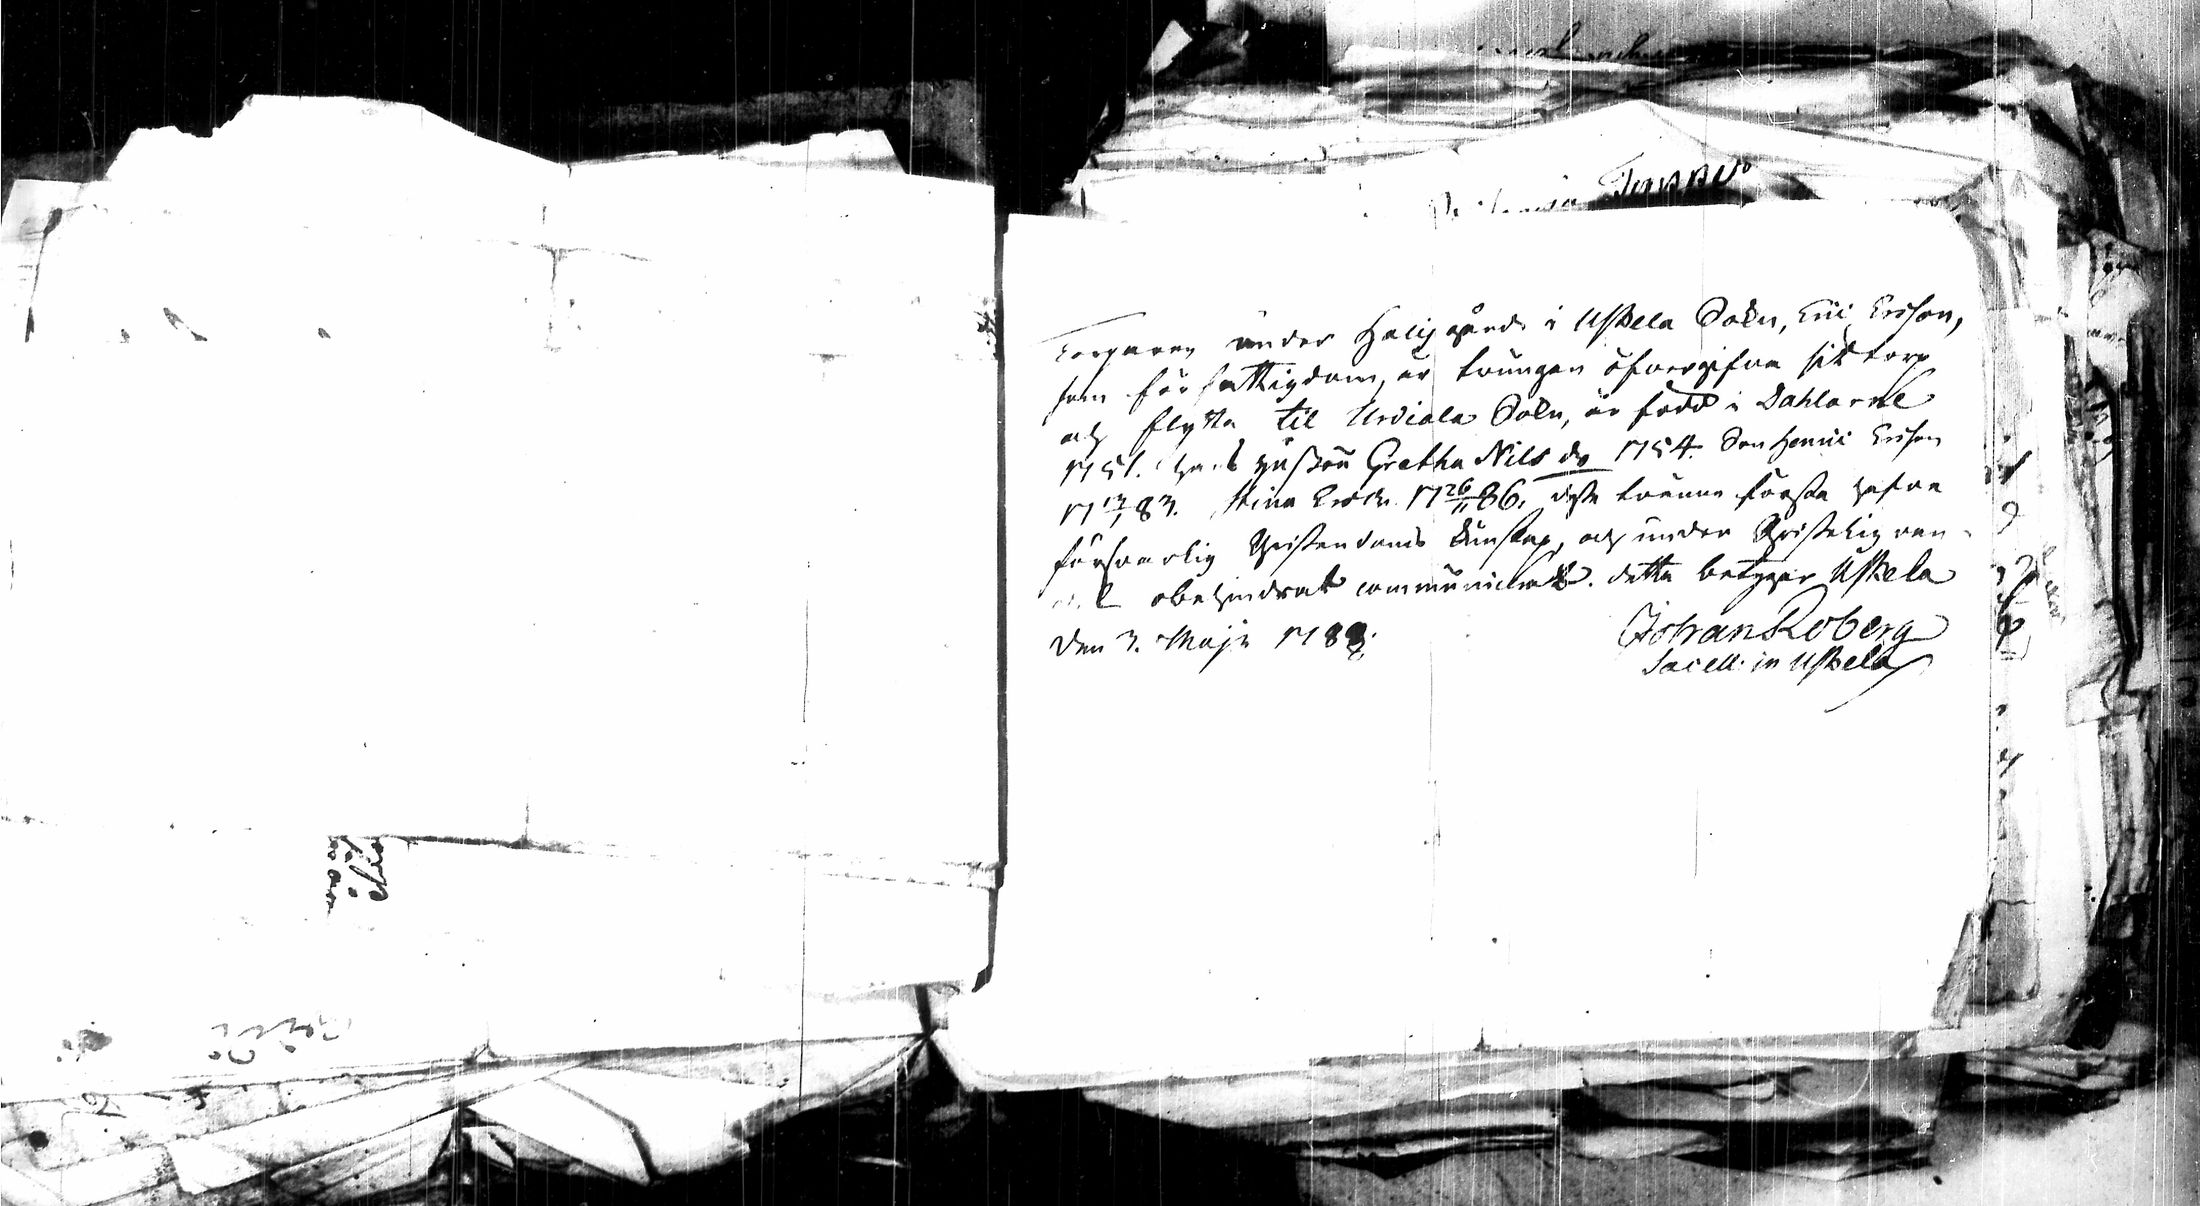 Torparen under Haligårds i Uskela Sokn, Eric Ersson,
som för fattigdom, är tvungen öfvergifva sit torp
och flytta til Urdiala Sokn, är född i Dahlarne
1751. hans hustru Gretha Nils dr 1754. Son Henric Ersson
17 13/1 83. Stina Ersdr. 17 26/11 86. desse tvänne första hafva
försvarlig Christendoms kunskap, och under Christelig van-
del obehindrat communicerat. detta betygar Uskela
den 3. Maji 1788.
Johan Roberg
Sacell: in Uskela